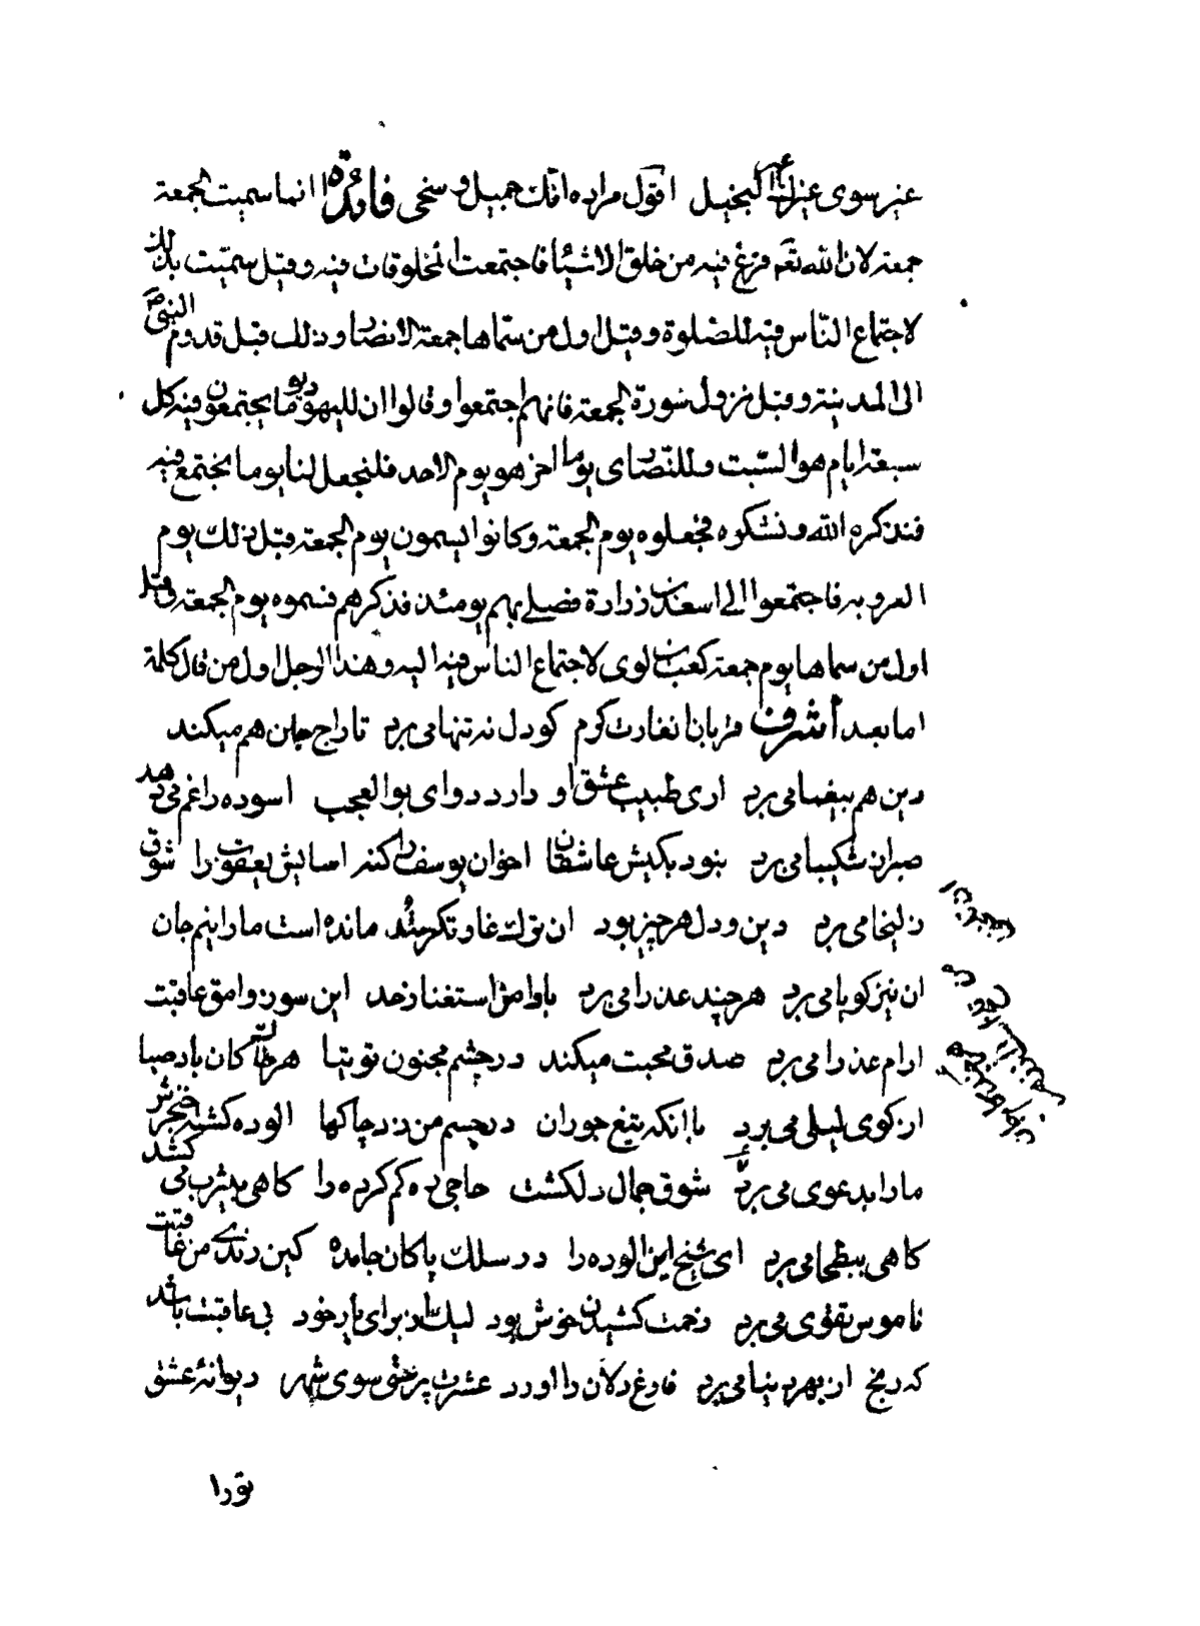 غير سوى عن كبخيل اقول مراده انك جميل و سخى فائدة انما سميت الجمعة
جمعة لان الله تعم فرغ فيه من خلق الاشيآ فاجتمعت المخلوقات فيه و قيل سميت بذلك
لاجتماع الناس فيه للصلوة و قيل اول من سماها جمعة الانصار و ذلك قبل قدوم النبى ص
الى المدينة و قبل نزول سورة الجمعة فانهم اجتمعوا و قالوا ان لليهود يوما يجتمعون فيه كل
سبعة ايام هو السبت و للنصارى يوما اخر هو يوم الاحد فلنجعل لنا يوما نجتمع فيه
فنذكره الله و نشكره فجعلوه يوم الجمعة و كانوا يسمون يوم الجمعة قبل ذلك يوم
العروبه فاجتمعوا الى اسعد بن زرارة فصلى بهم يومئذ فذكرهم فسموه يوم الجمعة و قيل
اول من سماها يوم جمعة كعب بن لوى لاجتماع الناس فيه اليه و هذا الرجل اول من قال كلمة
اما بعد اشرف قربان غارت كرم كو دل نه تنها مى برد تاراج جان هم ميكند
دين هم بيغما مى برد ارى طبيب عشق او دارد دواى بو العجب اسوده را غم مى دهد
صبر از شكيبا مى برد نبود بكيش عاشقان اخوان يوسف را كنه اسايش يعقوب را شوق
زليخا مى برد دين و دل هر چيز بود ان ترك غارتكر مانده است ما را نيم جان
ان نيز كويا مى برد هر چند عذرا مى برد باوامق استغنا زحد اين سوز وامق عاقبت
ارام عذرا مى برد صدق محبت ميكند در چشم مجنون توتيا هر خاك كان باد صبا
از كوى ليلى مى برد با انكه تيغ جور ان در جسم من زد چاكها الوده كشته خنجرش
ما را بدعوى مى برد شوق جمال دلكشت حاجى ره كم كرده را كاهى بيثرب مى كشد
كاهى ببطحا مى برد اى شيخ اين الوده را در سلك پاكان جا مده كين رندى من عاقبت
ناموس تقوى مى برد زحمت كشيدن خوش بود ليك از براى يار خود بى عاقبت باشد
كه رنج از بهر دنيا مى برد فارغ دلان را اورد عشرت پرستى سوى شهر ديوانۀ عشق
تو را